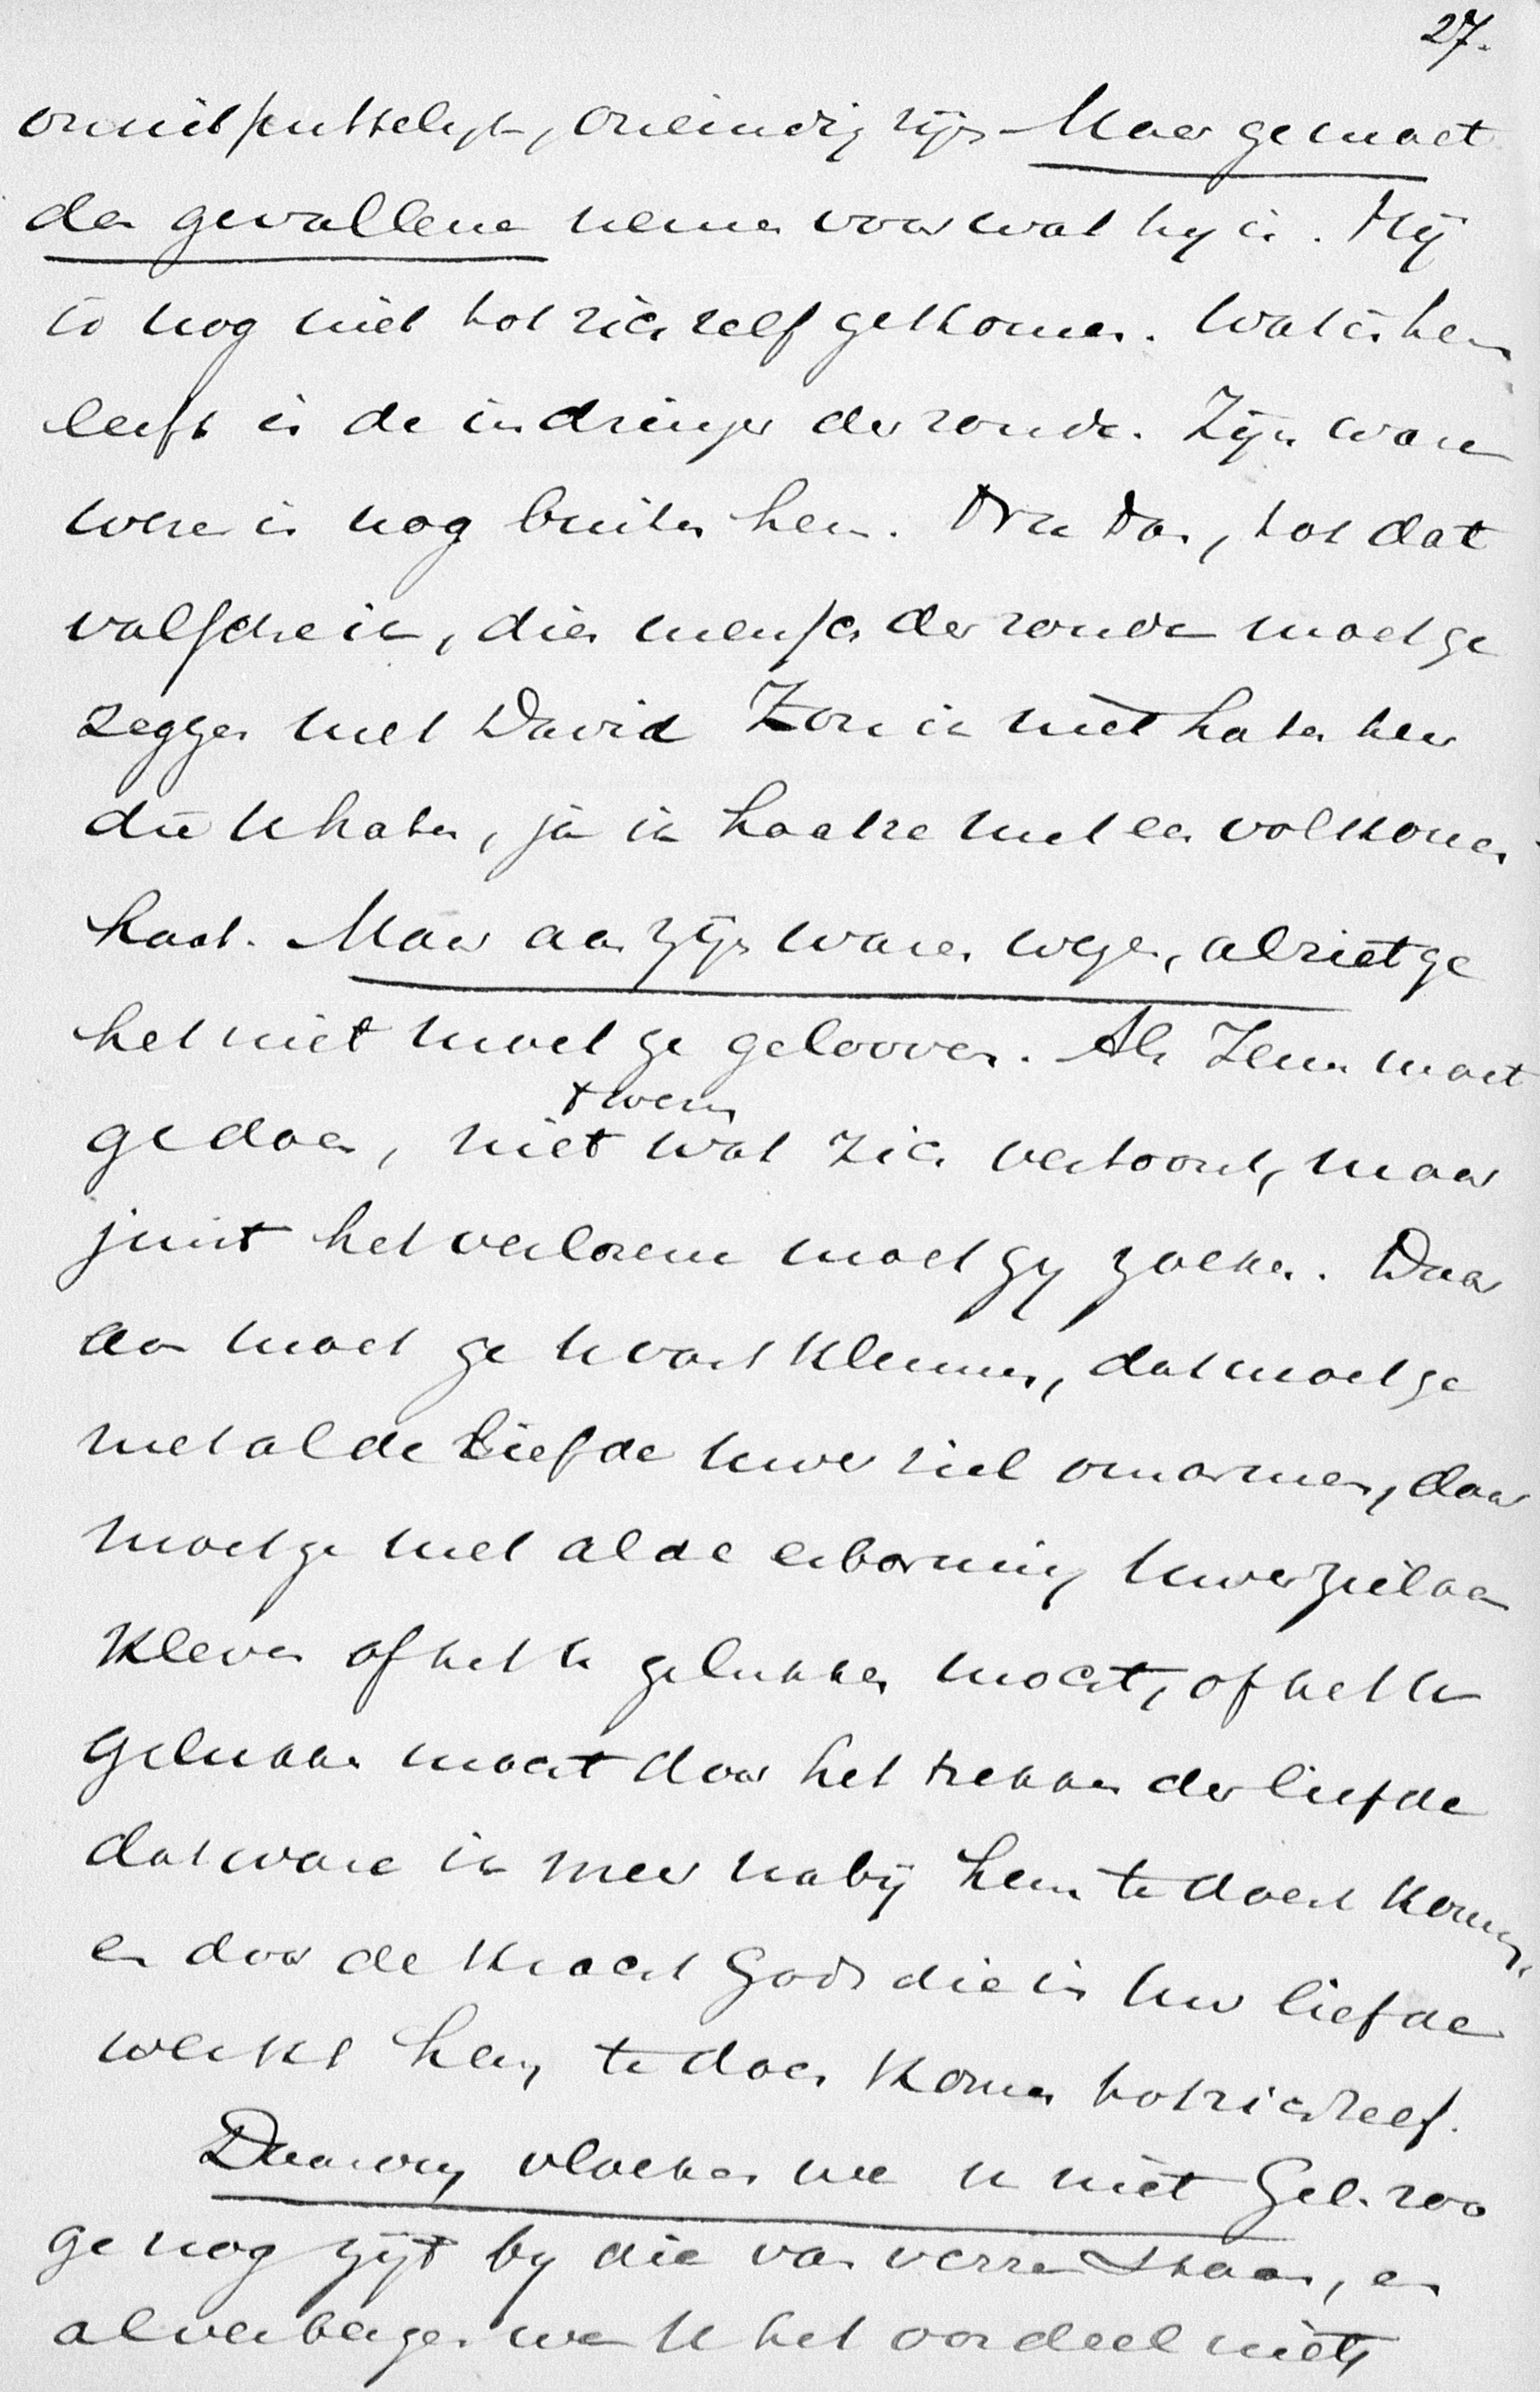 27.
onuitputtelijk, oneindig zijn. Maar ge moet
den gevallene nemen voor wat hij is. Hij
is nog niet tot zich zelf gekomen. Wat in hem
leeft is de indringer der zonde. Zijn ware
wezen is nog buiten hem. Tot dat
valsche ik, dien mensch der zonde moet ge
zeggen met David Zou ik niet haten hen
die U haten, ja ik haat ze met een volkomen
haat. Maar aan zijn ware wezen, al ziet ge
het niet moet ge gelooven. Als Jezus moet
ge doen, niet wat zich vertoont, maar
juist het verlorene moet gij zoeken. Daar
aan moet ge u vastklemmen, dat moet ge
met al de liefde uwer ziel omarmen, daar
moet ge met al de erbarming uwer ziel aan
kleven of het u gelukken mocht, of het u
gelukken mocht door het trekken der liefde
dat ware ik meer nabij hem te doen komen,
en door de kracht Gods die in uw liefde
werkt hem te doen komen tot zich zelf.
Daarom vloeken we u niet Gel. zoo
ge nog zijt bij die van verre staan, en
al verbergen we U het oordeel niet,